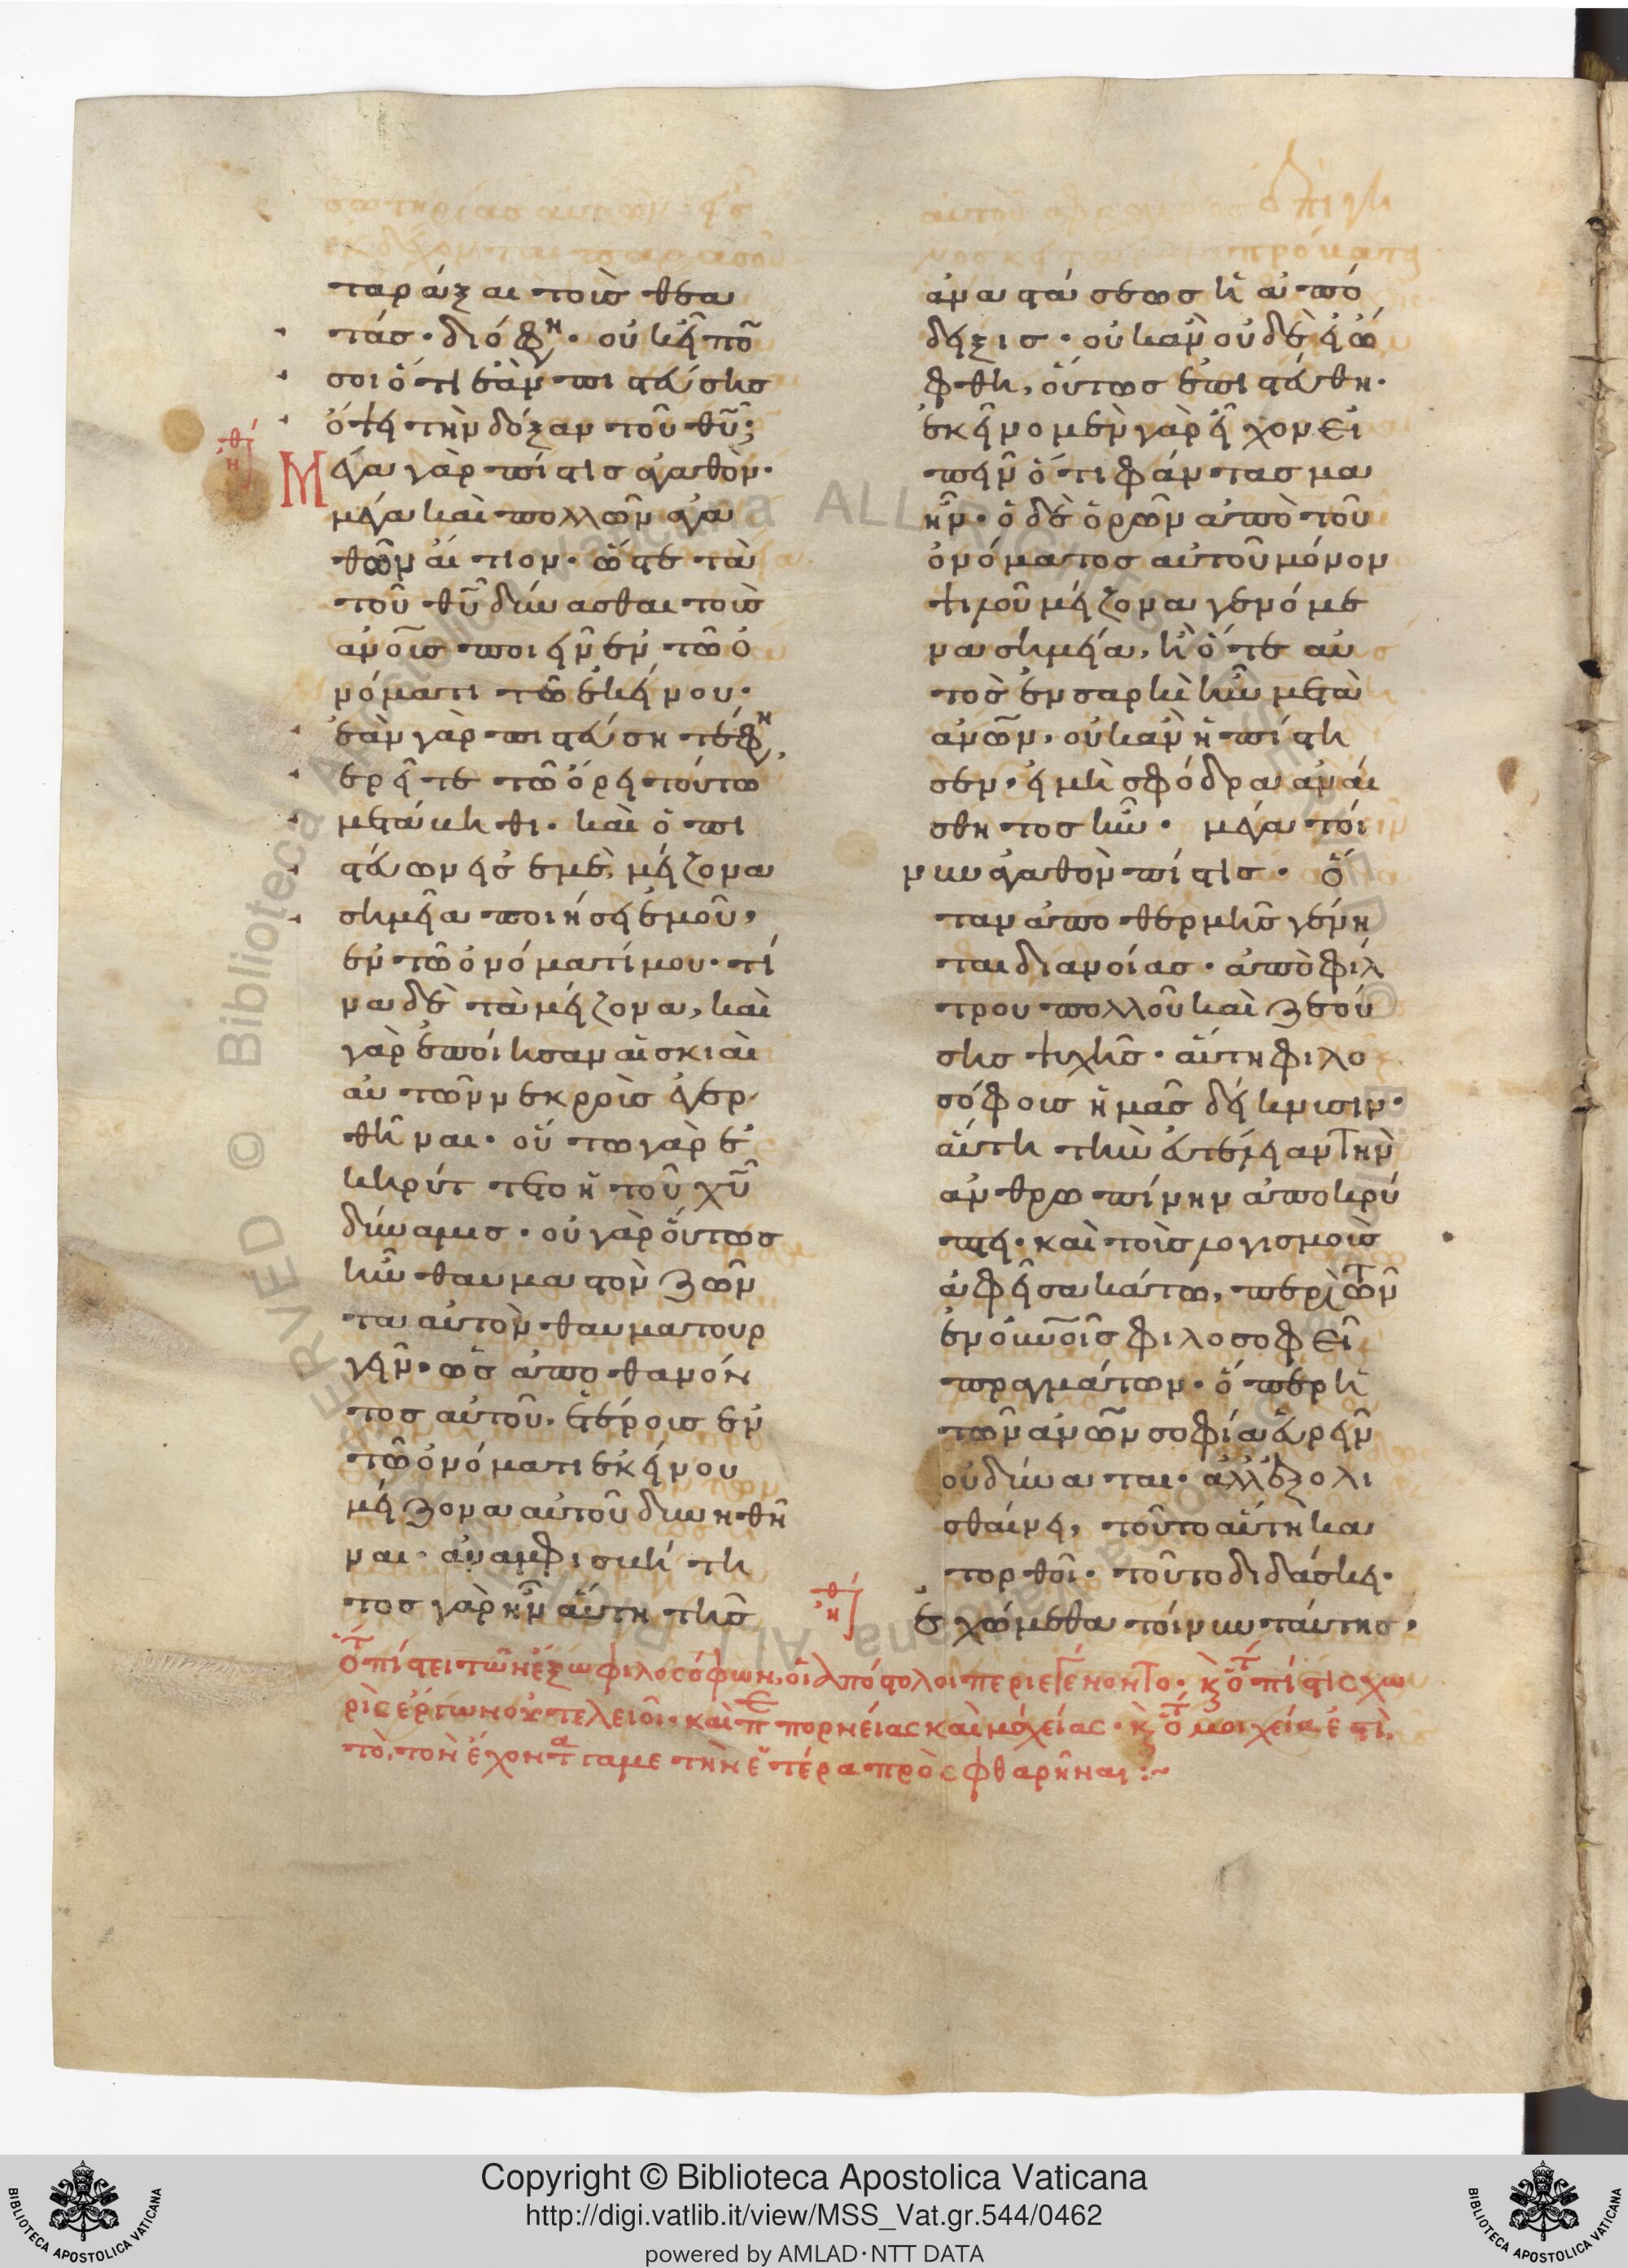 ταράξαι τοὺς θεα
τάς· διό φη· οὐκ εἶπόν
σοι ὅτι ἐὰν πιστεύσης
ὄψει τὴν δόξαν τοῦ θῦ;
Μέγα γὰρ πίστις ἀγαθὸν·
μέγα καὶ πολλῶν ἀγα
θῶν αἴτιον· ὥστε τὰ
τοῦ θῦ δύνασθαι τοὺς
ἀνοῦς ποιεῖν ἐν τῶ ὀ
νόματι τῶ ἐκείνου·
ἐὰν γὰρ πίστιν ἔχητε φη,
ἐρεῖτε τῶ ὄρει τούτω
μετάβηθι· καὶ ὁ πι
στεύων εἰς ἐμὲ, μείζονα
σημεῖα ποιήσει ἐμοῦ,
ἐν τῶ ὀνόματί μου· τί
να δὲ τὰ μείζονα, καὶ
γὰρ ἐποίησαν αἱ σκιαὶ
αὐτῶν νεκροὺς ἐγερ
θῆναι· οὕτω γὰρ ἐ
κηρύττετο ἡ τοῦ χῦ
δύναμις· οὐ γὰρ οὕτως
ἦν θαυμαστὸν ζῶν
τα αὐτὸν θαυματουρ
γεῖν· ὡς ἀποθανόν
τος αὐτοῦ, ἑτέροις ἐν
τῶ ὀνόματι ἐκείνου
μείζονα αὐτοῦ δυνηθῆ
ναι· ἀναμφισβήτη
τος γὰρ ἦν αὕτη τῆς
ἀναστάσεως ἡ ἀπό
δειξις· οὐκ ἂν οὐδὲ εἰ ὤ
φθη, οὕτως ἐπιστεύθη·
ἐκεῖνο μὲν γὰρ εἶχον εἰ
πεῖν ὅτι φάντασμα
ἦν· ὁ δὲ ὁρῶν ἀπὸ τοῦ
ὀνόματος αὐτοῦ μόνον
ψιλοῦ μείζονα γενόμε
να σημεῖα, ἢ ὅτε αὐ
τὸς ἐν σαρκὶ ἦν μετὰ
ἀνῶν, οὐκ ἂν ἠπίστη
σεν· εἰ μὴ σφόδρα ἀναί
σθητος ἦν· μέγα τοί
νυν ἀγαθὸν πίστις· ὅ
ταν ἀπὸ θερμῆς γένη
ται διανοίας· ἀπὸ φίλ
τρου πολλοῦ καὶ ζεού
σης ψυχῆς· αὕτη φιλο
σόφους ἡμᾶς δείκνυσιν·
αὕτη τὴν εὐτέλειαν τὴν
ἀνθρωπίνην ἀποκρύ
πτει· καὶ τοὺς λογισμοὺς
ἀφεῖσα κάτω, περὶ τῶν
ἐν οὐνοῖς φιλοσοφεῖ
πραγμάτων· ὅπερ ἡ
τῶν ἀνῶν σοφία εὑρεῖν
οὐ δύναται· ἀλλ' ἐξολι
σθαίνει, τοῦτο αὕτη κα
τορθοῖ· τοῦτο διδάσκει·
ἐχώμεθα τοίνυν ταύτης·
ὅτ πίστει τῶν ἔξω φιλοσόφων, οἱ ἀπόστολοι περιεγένοντο· κ ὅτ πίστις χω
ρὶς ἔργων οὐ τελειοῖ· καὶ π πορνείας καὶ μοιχείας· κ ὅτ μοιχεία ἐστὶ,
τὸ, τὸν ἔχοντα γαμετὴν ἑτέρα προσφθαρῆναι :~
Copyright © Biblioteca Apostolica Vaticana
http://digi.vatlib.it/view/MSS_Vat.gr.544/0462
powered by AMLAD·NTT DATA